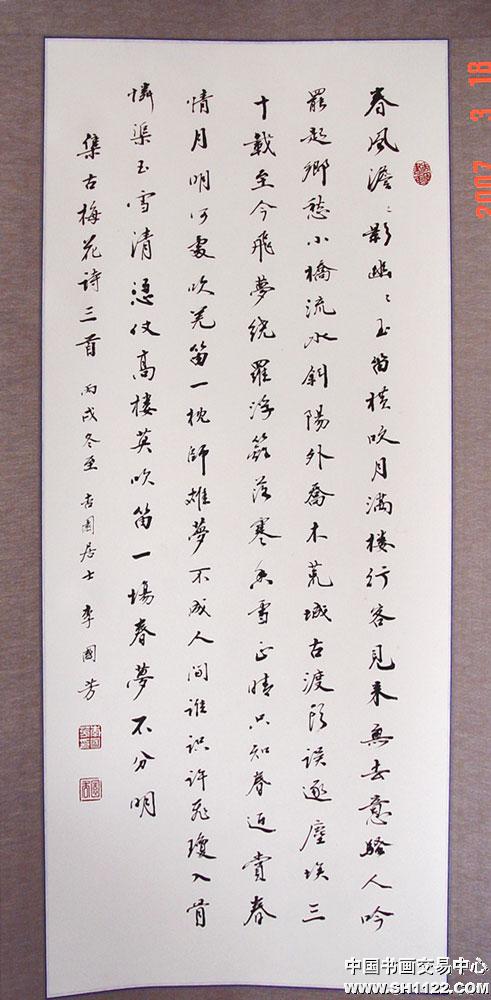 春風澹〻影幽〻玉笛橫吹月滿樓行客見來無去意騷人吟
罷起鄉愁小橋流水斜陽外喬木荒城古渡頭誤逐塵埃三
十載至今飛夢繞羅浮籬落寒香雪正晴只知春近賞春
情月明何處吹羌笛一枕師雄夢不成人間誰識許飛瓊入骨
憐渠玉雪清憑仗高樓莫吹笛一場春夢不分明
集古梅花詩三首 丙戌冬至 杏園居士 李國芳
2007 3 18
中国书画交易中心
www.SH1122.com